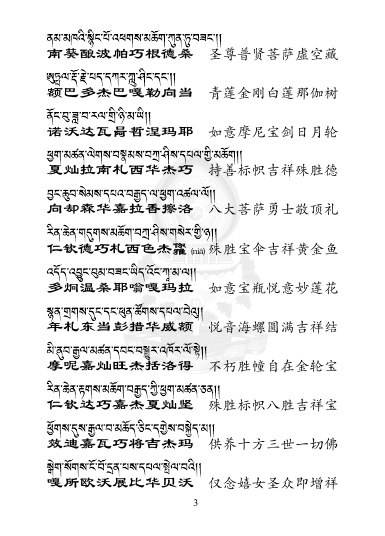 ནམ་མཁའི་སྙིང་པོ་འཕགས་མཆོག་ཀུན་ཏུ་བཟང་།།
南葵酿波帕巧根德桑 圣尊普贤菩萨虚空藏
ཨུཏྤལ་རྡོ་རྗེ་པད་དཀར་ཀླུ་ཤིང་དང་།།
额巴多杰巴嘎勒向当 青莲金刚白莲那伽树
ནོར་བུ་ཟླ་བ་རལ་གྲི་ཉི་མ་ཡི།།
诺沃达瓦昌哲涅玛耶 如意摩尼宝剑日月轮
ཕྱག་མཚན་ལེགས་བསྣམས་བཀྲ་ཤིས་དཔལ་གྱི་མཆོག།
夏灿拉南札西华杰巧 持善标帜吉祥殊胜德
བྱང་ཆུབ་སེམས་དཔའ་བརྒྱད་ལ་ཕྱག་འཚལ་ལོ།།
向却森华嘉拉香擦洛 八大菩萨勇士敬顶礼
རིན་ཆེན་གདུགས་མཆོག་བཀྲ་ཤིས་གསེར་གྱི་ཉ།།
仁钦德巧札西色杰 (nia) 殊胜宝伞吉祥黄金鱼
འདོད་འབྱུང་བུམ་བཟང་ཡིད་འོང་ཀ་མ་ལ།།
多炯温桑耶嗡嘎玛拉 如意宝瓶悦意妙莲花
སྙན་གྲགས་དུང་དང་ཕུན་ཚོགས་དཔལ་བེའུ།།
年札东当彭措华威额 悦音海螺圆满吉祥结
མི་ནུབ་རྒྱལ་མཚན་དབང་བསྒྱུར་འཁོར་ལོ་སྟེ།།
摩呢嘉灿旺杰括洛得 不朽胜幢自在金轮宝
རིན་ཆེན་རྟགས་མཆོག་བརྒྱད་ཀྱི་ཕྱག་མཚན་ཅན།།
仁钦达巧嘉杰夏灿坚 殊胜标帜八胜吉祥宝
ཕྱོགས་དུས་རྒྱལ་བ་མཆོད་ཅིང་དགྱེས་བསྐྱེད་མ།།
效迪嘉瓦巧将吉杰玛 供养十方三世一切佛
སྒེག་སོགས་ངོ་བོ་དྲན་པས་དཔལ་སྤེལ་བའི།།
嘎所欧沃展比华贝沃 仅念嬉女圣众即增祥
3